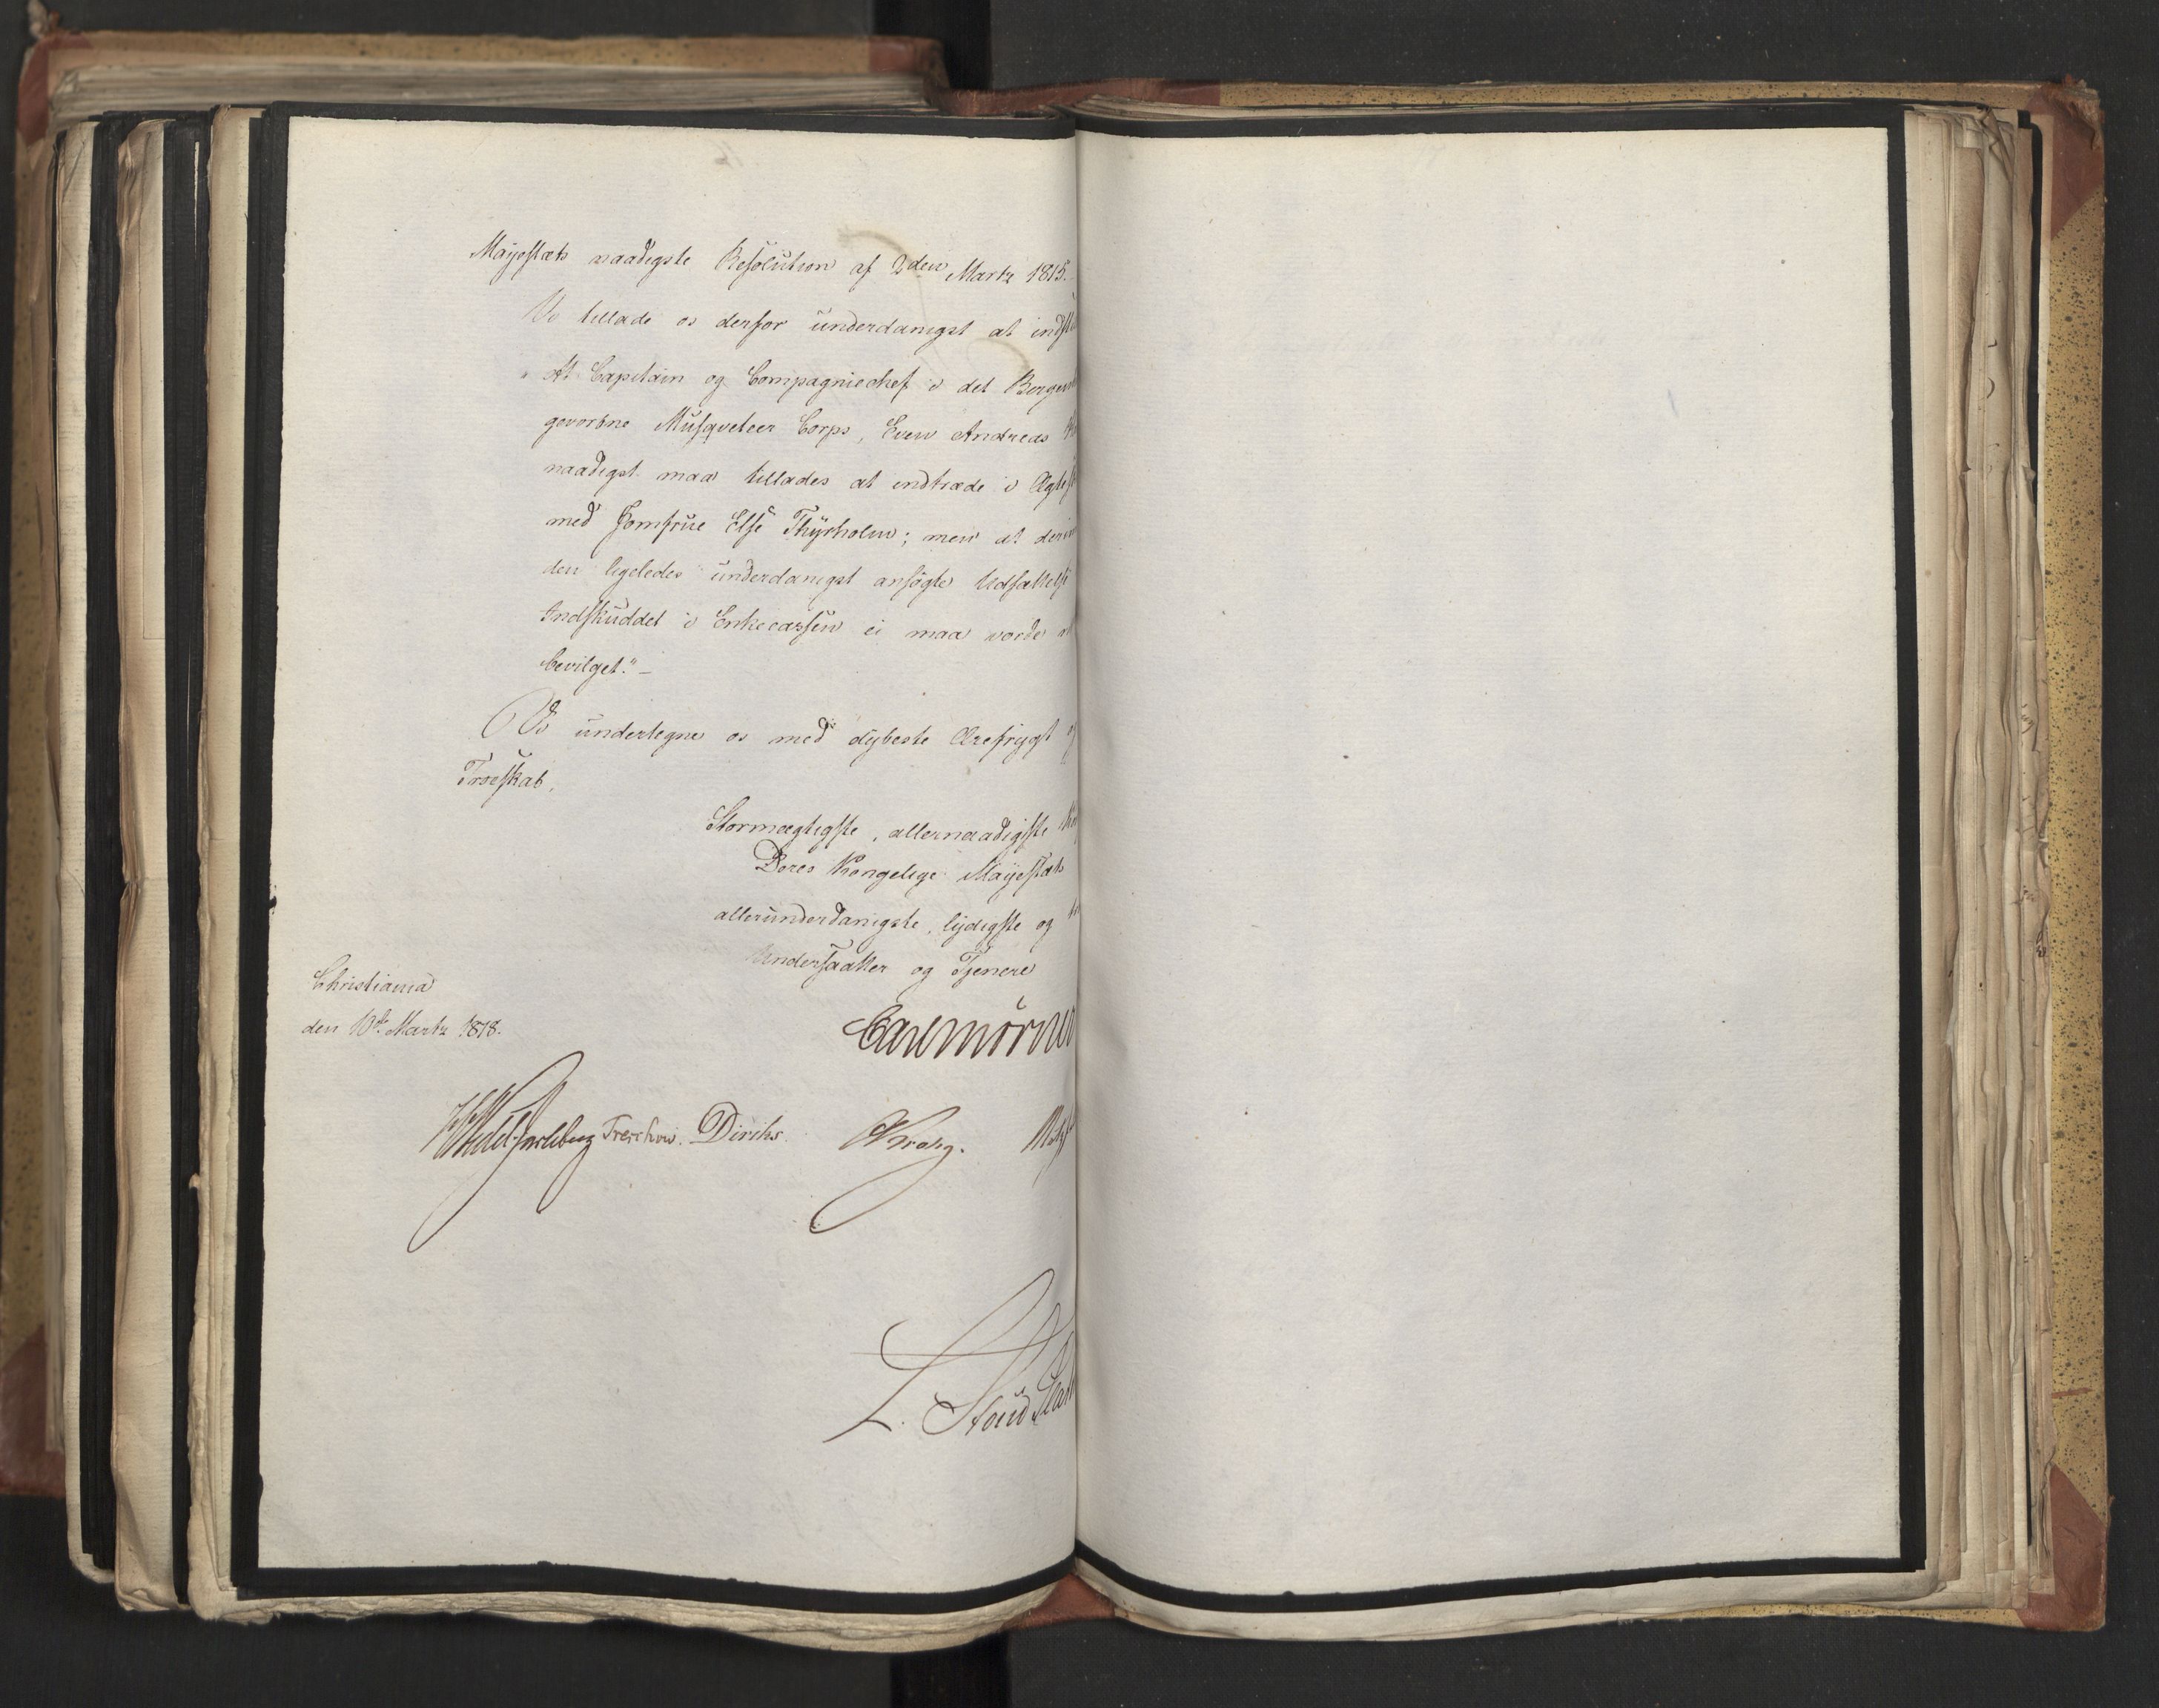 Mayestæts naadigste Resolution af 2den Martz 1815.
Vi tillade os derfor underdanigst at indst
At Capitain og Compagniechef i det Bergen
gevorbne Musqveteer Corps, Even Andreas
naadigst maa tillades at indtræde i Ægtest
med Jomfrue Else Thyrholm; men at deri
den ligeledes underdanigst ansøgte Udsættelse
Indskuddet i Enkecassen ei maa vorde
bevilget."—
Vi undertegne os med dybeste Ærefrygt og
Troeskab,
Stormægtigste, allernaadigste
Deres Kongelige Mayestæts
allerunderdanigste, lydigste og
Undersaatter og Tjenere
Christiania
den 10de Martz 1818.
Carl Mörner
Wedel Jarlsberg Treschow. Diriks. Krohg.
L.